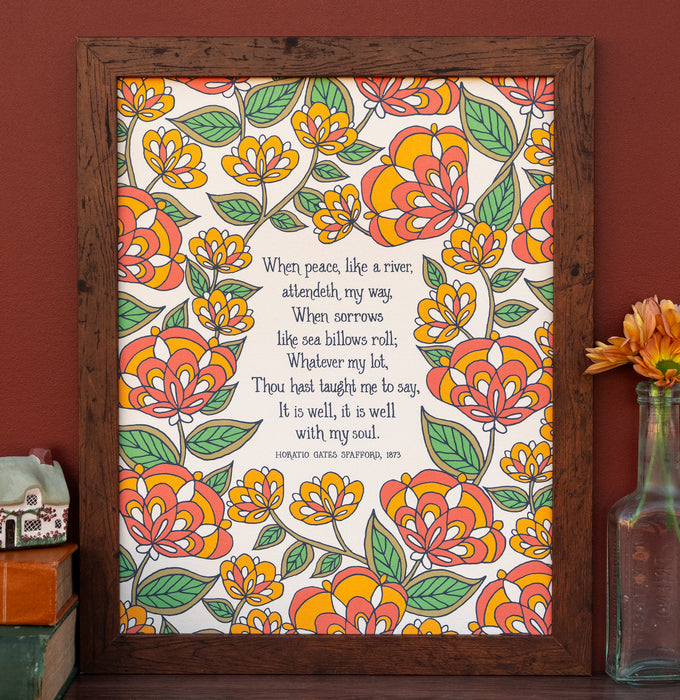 When peace, like a river,
attendeth my way,
When sorrows
like sea billows roll;
Whatever my lot,
Thou hast taught me to say,
It is well, it is well
with my soul.
HORATIO GATES SPAFFORD, 1873